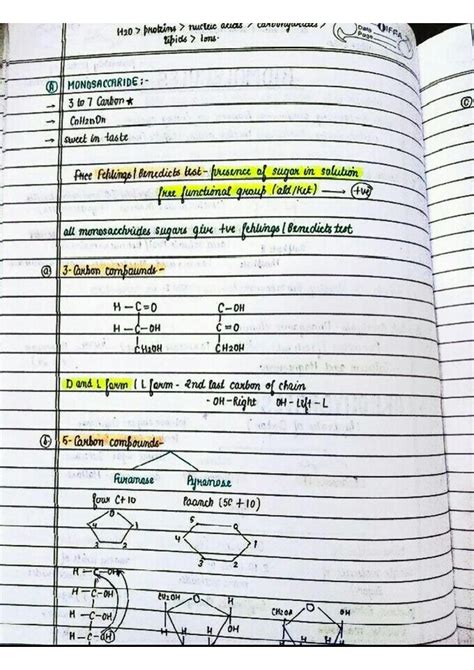 H2O > proteins > nucleic acids > carbohydrates >
lipids > ions.
Date
Page
(A) MONOSACCARIDE :-
→ 3 to 7 Carbon ★
→ CnH2nOn
→ sweet in taste
Free Fehlings / Benedicts test - presence of sugar in solution
free functional group (ald/ket) → +ve
all monosacchrides sugars give +ve fehlings / Benedicts test
(a) 3-Carbon compounds -
H - C = O C - OH
H - C - OH C = O
CH2OH CH2OH
D and L form ( L form - 2nd last carbon of chain
- OH - Right OH - left - L
(b) 5-Carbon compounds -
Furanose Pyranose
four C + 10 Paanch (5C + 10)
O
4 1
3 2
5 O
4 1
3 2
H - C - OH
H - C - OH
H - C - OH
H - C - OH
CH2OH O OH
H H
O OH
H H